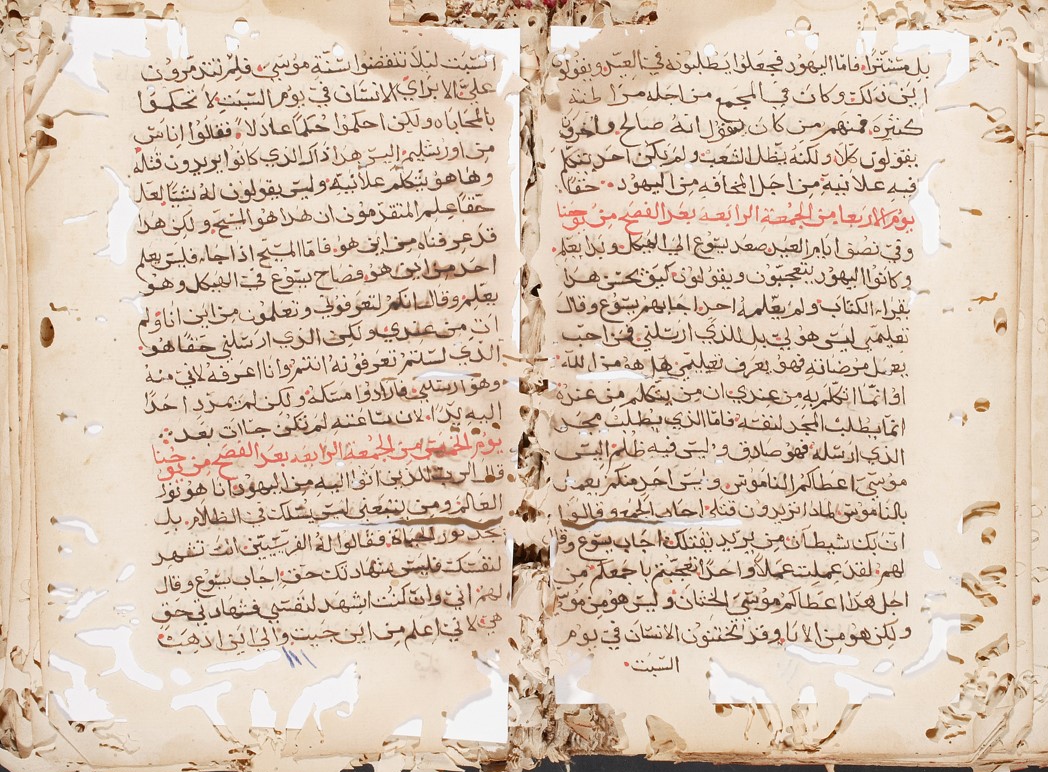 بل مستترًا فاما اليهود فجعلوا يطلبونه في العيد ويقولو
اين ذلك وكان في المجمع من اجله مراطنة
كثيرة فمنهم من كان يقول انه صالح واخرون
يقولون كلا ولكنه يضل الشعب ولم يكن احد يتكلم
فيه علانية من اجل المخافه من اليهود حقا
يوم الاربعا من الجمعة الرابعه بعد الفصح من يوحنا
وفي نصف ايام العيد صعد يسوع الى الهيكل وبدا يعلم
وكانوا اليهود يتعجبون ويقولون كيف يحسن هذا
يقراء الكتاب ولم يعلمه احد اجابهم يسوع وقال
تعليمي ليس هو لي بل للذي ارسلني فمن احب
يعمل مرضاته فهو يعرف تعليمي هل هو من الله
او انما اتكلم به من عندي ان من يتكلم من عنده
انما يطلب المجد لنفسه فاما الذي يطلب مجد
الذي ارسله فهو صادق وليس فيه ظلم اليس
موسى اعطاكم الناموس وليس احد منكم يعمل
بالناموس لماذا تريدون قتله اجاب الجمع وقالوا
ان بك شيطان من يريد يقتلك اجاب يسوع وقا
لهم لقد عملت عملاً واحدًا فعجبتم باجمعكم من
اجل هذا اعطاكم موسى الختان وليس هو من موسى
ولكن هو من الابا وقد تختنون الانسان في يوم
السبت
السبت ليلا تنقضوا سنة موسى فلم تتذمرون
عليَّ لابراي الانسان في يوم السبت لا تحكموا
بالمحاباه ولكن احكموا حكمًا عادلا فقالوا اناس
من اورشليم اليس هذا ذاك الذي كانوا يريدون قتله
وها هو يتكلم علانيه وليس يقولون له شيًا لعل
حقًا علم المتقدمون ان هذا هو المسيح ولكن هذا
قد عرفناه من اين هو فاما المسيح اذا جاء فليس يعلم
احد من اين هو فصاح يسوع في الهيكل وهو
يعلم وقال انكم لتعرفوني وتعلمون من اين انا ولم
ات من عندي ولكن الذي ارسلني حقا هو
الذي لستم تعرفونه انتم وانا اعرفه لاني منه
وهو ارسلني فارادوا مسكه ولكن لم يمد احدًا
اليه يدًا لان ساعته لم تكن جات بعد
يوم الخميس من الجمعة الرابعه بعد الفصح من يوحنا
قال الرب للذين اتوا اليه من اليهود انا هو نور
العالم ومن يتبعني ليس يسلك في الظلام بل
يجد نور الحياة فقالوا له الفريسيين انت تشهد
لنفسك فليس شهادتك حق اجاب يسوع وقال
لهم اني وان كنت اشهد لنفسي فشهادتي حق
هي لاني اعلم من اين جيت والى اين اذهب